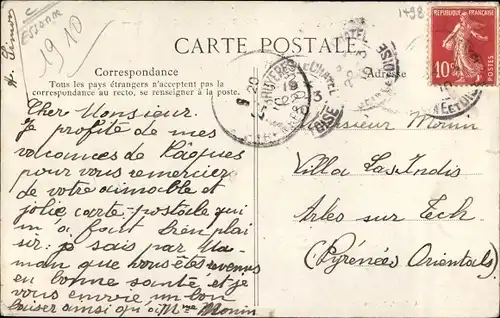 Essonne
1910
1498
CARTE POSTALE
Correspondance
Tous les pays étrangers n'acceptent pas la
correspondance au recto, se renseigner à la poste.
Adresse
RÉPUBLIQUE FRANÇAISE
10 c
POSTES
Cher Monsieur.
Je profite de mes
vacances de Pâques
pour vous remercier
de votre aimable et
jolie carte-postale qui
m'a fait bien plai
sir: je sais par Ma-
man que vous êtes revenus
en bonne santé et je
vous envoie un bon
baiser ainsi qu'à Mme Monin
Monsieur Monin
Villa Las Indis
Arles sur Tech
(Pyrénées Orientales)